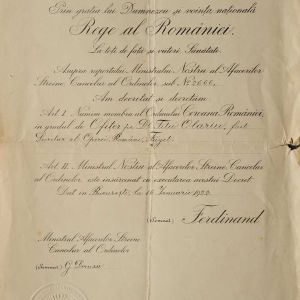 Prin grația lui Dumnezeu și voința națională
Rege al României.
La toți de față și viitori, Sănătate.
Asupra raportului Ministrului Nostru al Afacerilor
Streine, Cancelar al Ordinelor, sub No 2666,
Am decretat și decretăm:
Art. I. Numim membru al Ordinului Coroana României,
în gradul de Ofițer pe D. Titu Olariu, fost
Director al Operei Române,
Art. II. Ministrul Nostru al Afacerilor Streine, Cancelar
al Ordinelor, este însărcinat cu executarea acestui Decret.
Dat în București, la 16 Ianuarie 1922.
(Semnat) Ferdinand
Ministrul Afacerilor Streine
Cancelar al Ordinelor
(Semnat) G.